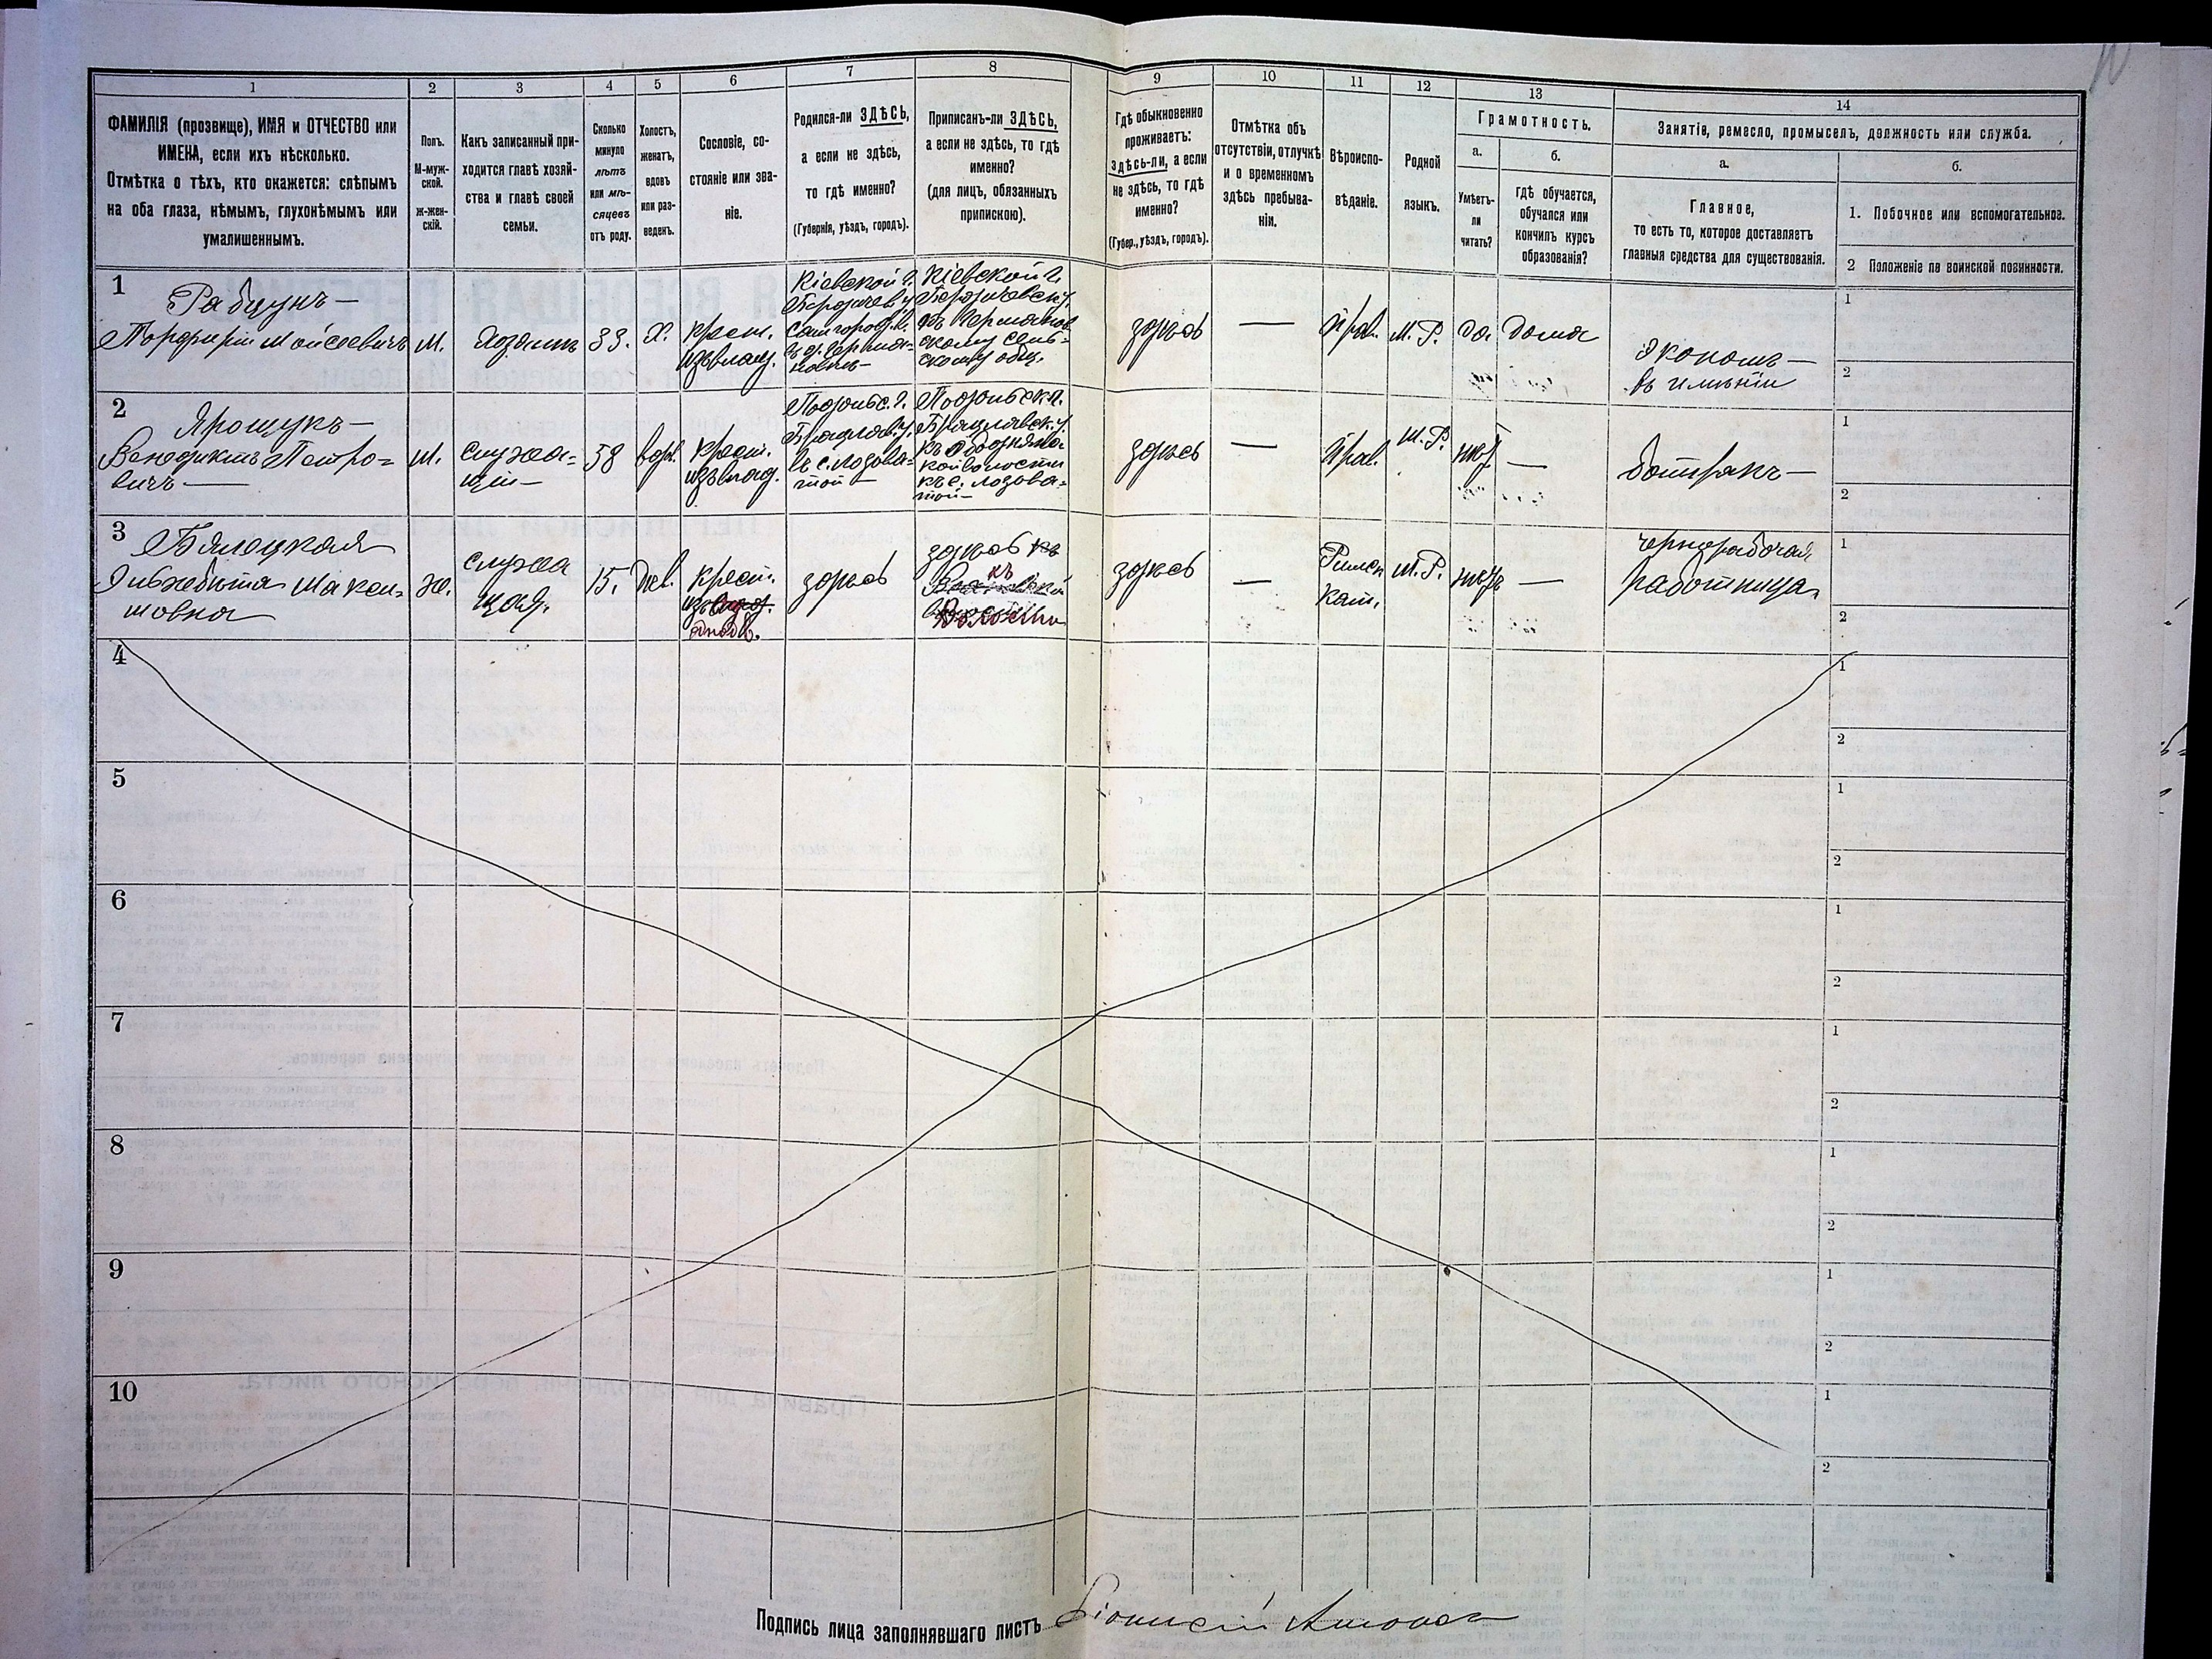 1 2 3 4 5 6 7 8 9 10 11 12 13 14
ФАМИЛІЯ (прозвище), ИМЯ и ОТЧЕСТВО или
ИМЕНА, если ихъ нѣсколько.
Отмѣтка о тѣхъ, кто окажется: слѣпымъ
на оба глаза, нѣмымъ, глухонѣмымъ или
умалишеннымъ.
Полъ.
М-муж-
ской.
ж-жен-
скій.
Какъ записанный при-
ходится главѣ хозяй-
ства и главѣ своей
семьи.
Сколько
минуло
лѣтъ
или мѣ-
сяцевъ
отъ роду.
Холостъ,
женатъ,
вдовъ
или раз-
веденъ.
Сословіе, со-
стояніе или зва-
ніе.
Родился-ли ЗДѢСЬ,
а если не здѣсь,
то гдѣ именно?
(Губернія, уѣздъ, городъ).
Приписанъ-ли ЗДѢСЬ,
а если не здѣсь, то гдѣ
именно?
(для лицъ, обязанныхъ
припискою).
Гдѣ обыкновенно
проживаетъ:
здѣсь-ли, а если
не здѣсь, то гдѣ
именно?
(Губер., уѣздъ, городъ).
Отмѣтка объ
отсутствіи, отлучкѣ
и о временномъ
здѣсь пребыва-
ніи.
Вѣроиспо-
вѣданіе.
Родной
языкъ.
Грамотность.
а.
Умѣетъ-
ли
читать?
б.
гдѣ обучается,
обучался или
кончилъ курсъ
образованія?
Занятіе, ремесло, промыселъ, должность или служба.
а.
Главное,
то есть то, которое доставляетъ
главныя средства для существованія.
б.
1. Побочное или вспомогательное.
2 Положеніе по воинской повинности.
1
Порфирій Мойсеевичъ
М.
Хозяинъ
33.
Х.
крест.
изъ влад.
Кіевской г.
Кіевской г.
здѣсь
—
Прав.
М. Р.
да.
дома
Экономъ —
въ имѣніи
1
2
2
Ярощукъ —
Венедиктъ Петро=
вичъ —
М.
служа=
щій —
58
вдов.
крест.
изъ влад.
Подольс. г.
Брацлав. у.
въ с. Лозова=
той —
Подольск. г.
Брацлавск. у.
къ Ободнян=
кой волости
къ с. Лозова=
той —
здѣсь
—
Прав.
М. Р.
нѣтъ
—
батракъ —
1
2
3
Бялецкая
Эльжбета Макси=
мовна
ж.
служа
щая.
15.
дѣв.
крест.
однодв.
здѣсь
здѣсь
къ
волости
здѣсь
—
Римск
кат.
М. Р.
нѣтъ
—
чернорабочая
работница
1
2
4
1
2
5
1
2
6
1
2
7
1
2
8
1
2
9
1
2
10
1
2
Подпись лица заполнявшаго листъ Діонисій